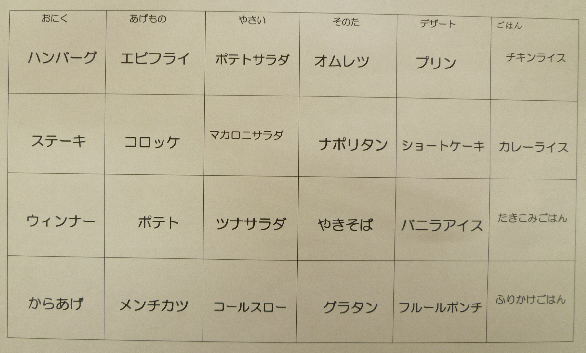 おにく
あげもの
やさい
そのた
デザート
ごはん
ハンバーグ
エビフライ
ポテトサラダ
オムレツ
プリン
チキンライス
ステーキ
コロッケ
マカロニサラダ
ナポリタン
ショートケーキ
カレーライス
ウィンナー
ポテト
ツナサラダ
やきそば
バニラアイス
たきこみごはん
からあげ
メンチカツ
コールスロー
グラタン
フルールポンチ
ふりかけごはん